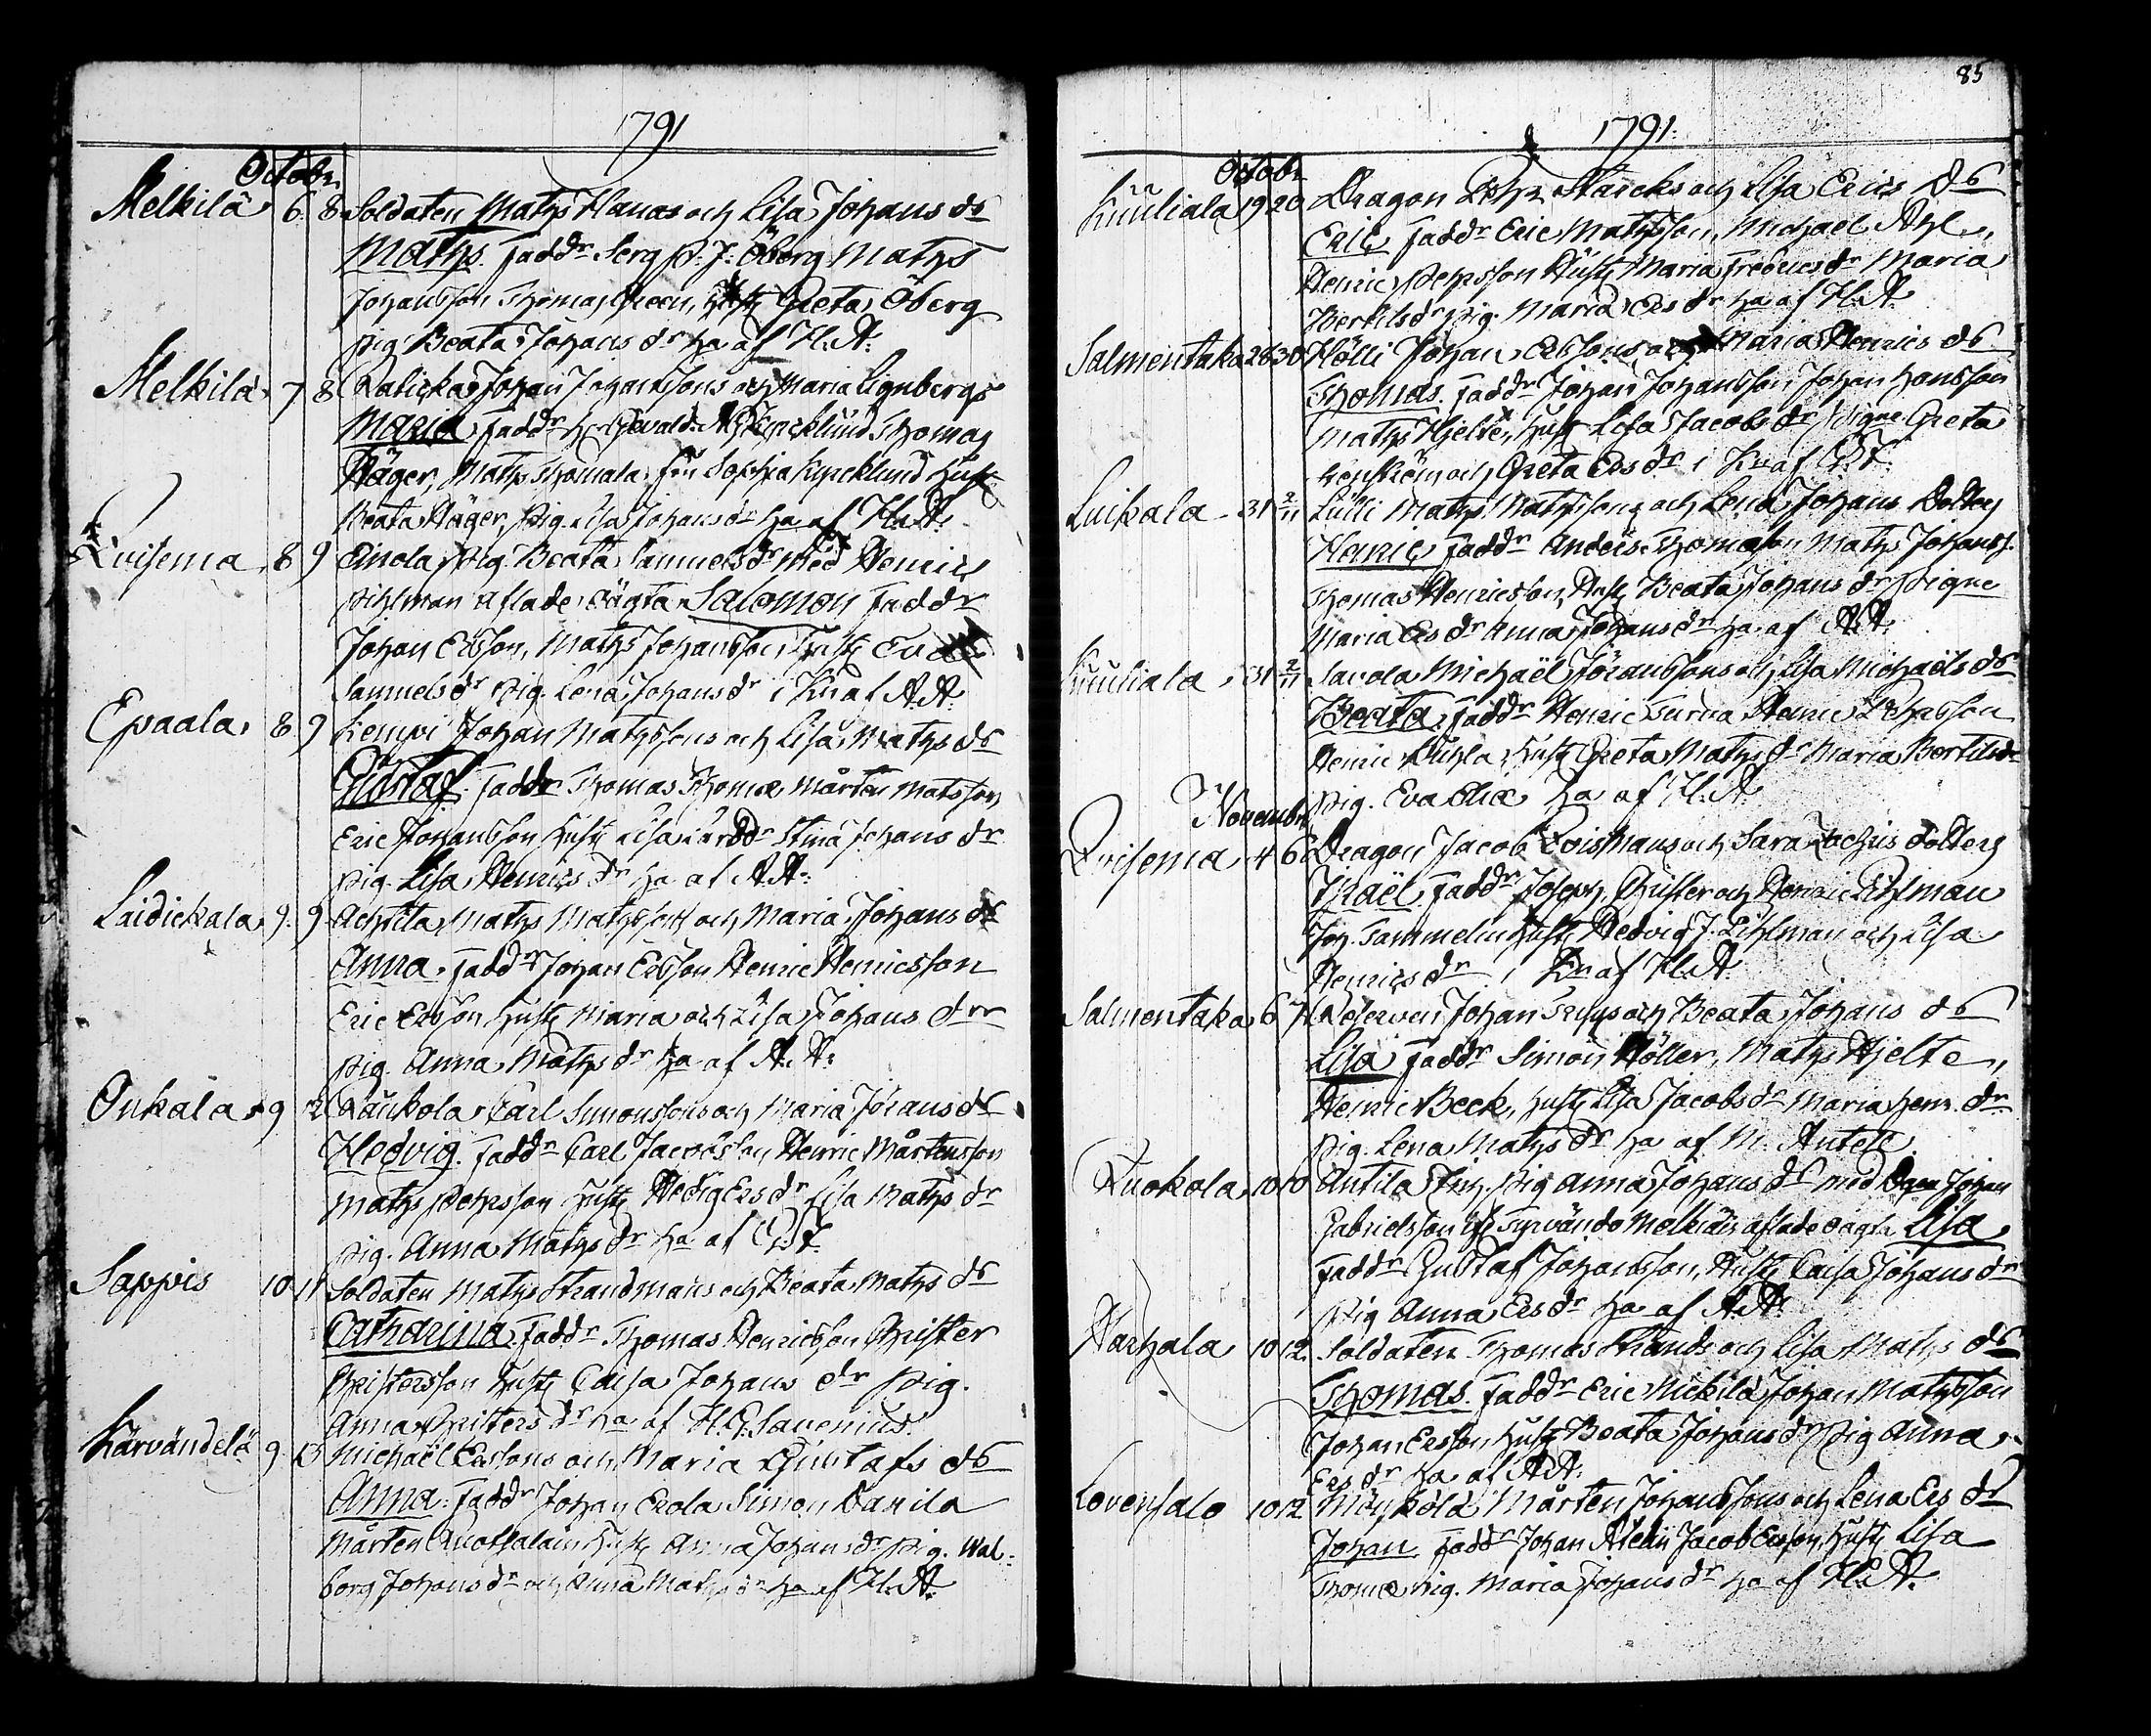 1791
Octobr
Melkilä 6. 8 Soldaten Maths Hanos och Lisa Johans ds
Maths. Faddr Serg P. J: Öberg Maths
Johansson Thomas Green, Hust Greta Öberg
pig Beata Johans dr ha af H. A:
Melkilä 7 8 Johan Johanssons och Maria Lignbergs
Maria. Faddr Hr Thomas
Häger, Maths Thomala, fru Sophia Kyrcklund Hust
Beata Häger, pig. Lisa Johansdr ha af H. A:
Qvisema 8 9 Einola pig. Beata Samuelsdr med Henric
Pihlman aflade oägta Salomon Faddr
Johan Ersson, Maths Johansson Hust Eva
Samuelsdr pig. Lena Johansdr i Kr af A A:
Epaala 8 9 Lempi Johan Mathssons och Lisa Maths ds
Gustaf. Faddr Thomas Thomæ Mårten Matsson
Eric Johansson Hust Lisa Stina Johans dr
pig. Lisa Henrics dr ha af A A:
Luidickala 9. 9 Achtila Maths Mathssons och Maria Johans ds
Anna. Faddr Johan Ersson Henric Henricsson
Eric Ersson Hust Maria och Lisa Johans drr
pig. Anna Maths dr ha af A. A:
Onkala 9 12 Raukola Carl Simonssons och Maria Jörans ds
Hedvig. Faddr Carl Jacobsson Henric Mårtensson
Maths Pehrsson Hust Hedig Ers dr Lisa Maths dr
pig. Anna Maths dr ha af
Sappis 10 11 Soldaten Maths Strandmans och Beata Maths ds
Catharina. Faddr Thomas Henricsson Christer
Christersson Hust Caisa Johans dr pig.
Anna Christers dr ha af H. G. Lavenius.
Kärvändelä 9. 13 Michaël Erssons och Maria Gustafs ds
Anna. Faddr Johan Erola Simon Danila
Mårten Hust Anna Johansdr pig. Wal-
borg Johansdr och Anna Maths dr ha af H. A:
85
1791.
Octobr
Kuuliala 19 20 Dragon Starcks och Lisa Erics ds
Eric Faddr Eric Mathsson, Michael
Henric Pehrsson Hust Maria Fredricsdr Maria
Bertilsdr pig. Maria Ers dr ha af H. A:
Salmentaka 28 30 Hölli Johan Erssons och Maria Henrics ds
Thomas. Faddr Johan Johansson Johan Hansson
Maths Hjelte, Hust Lisa Jacobs dr pigne Greta
och Greta Ers dr i Kr af
Luikala 31 2/11 Lulli Maths Mathssons och Lena Johans Dotters
Henric. Faddr Anders Thomasson Maths Johanss.
Thomas Henricsson, Hust Beata Johans dr pigne
Maria Ers dr Anna Johans dr ha af A A:
Kuuliala 31 2/11 Savola Michaël Jöranssons och Lisa Michaels ds
Beata. Faddr Henric Turna Henric
Henric Hust Greta Maths dr Maria Bertilsdr
pig. Eva ha af H. A:
Novembr
Qvisema 4 6 Dragon Jacob Qvismans och Sara dotters
Israël. Faddr Joseph Christer och Henric Pihlman
Joh. Sammelin Hust Hedvig J. Pihlman och Lisa
Henrics dr i Kr af H. A:
Salmentaka 6 7 Johan och Beata Johans ds
Lisa. Faddr Simon Höller, Maths Hjelte,
Henric Beck, Hust Lisa Jacobs dr Maria Henr. dr
pig. Lena Maths dr ha af M. Antell
Kuokola 10 10 Antila pig Anna Johans ds med Johan
Gabrielsson aflade oägta Lisa
Faddr Gustaf Johansson, Hust Caisa Johans dr
pig Anna Ers dr ha af A A:
Warhala 10 12 Soldaten Thomas Strands och Lisa Maths ds
Thomas. Faddr Eric Nickilä Johan Mathsson
Johan Ersson Hust Beata Johans dr pig Anna
Ers dr ha af A A:
Lovensalo 10 12 Mårten Johanssons och Lena Ers ds
Johan Faddr Johan Jacob Ersson Hust Lisa
Thomæ pig. Maria Johans dr ha af H. A: